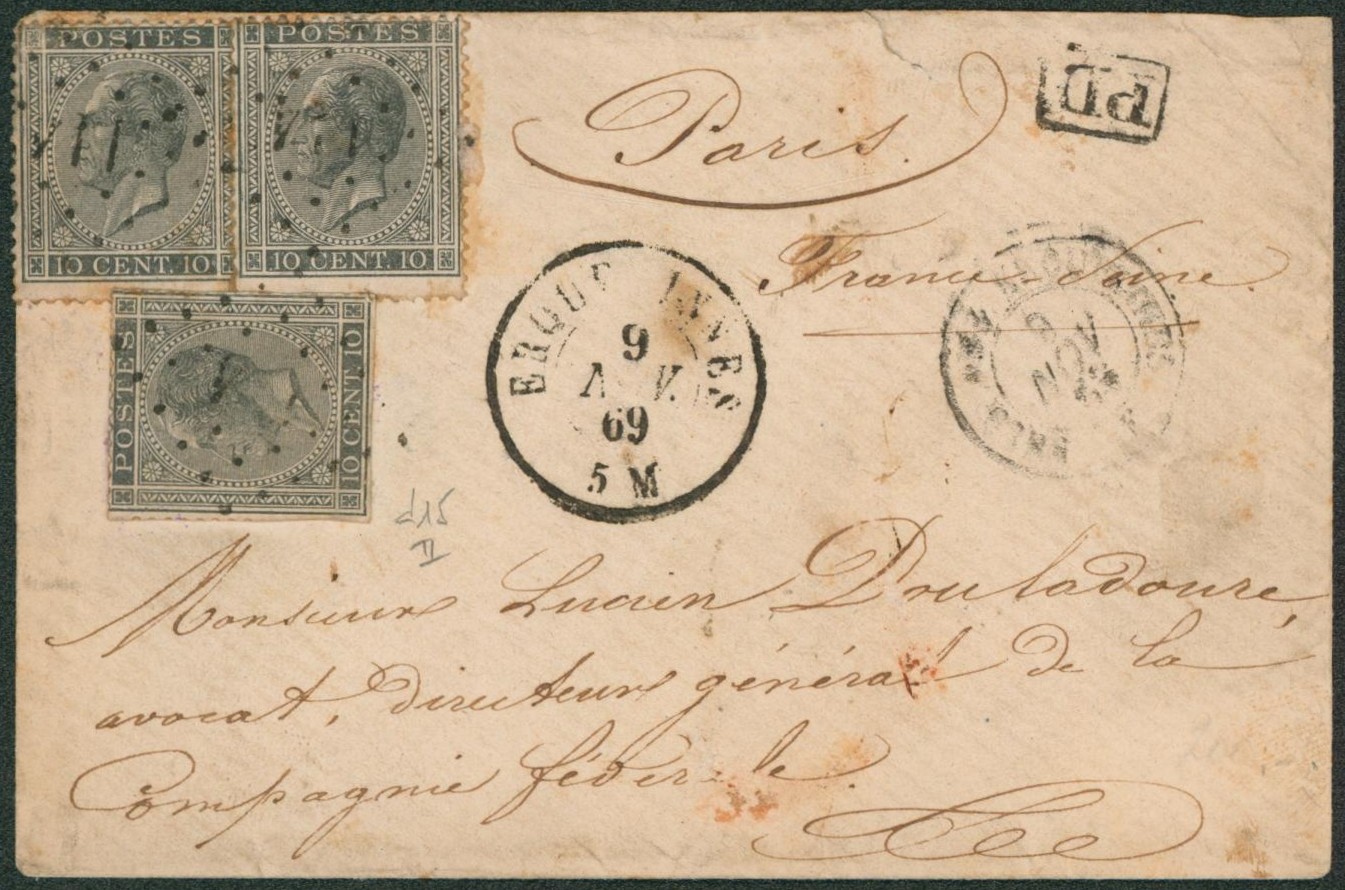 POSTES
10 CENT. 10
POSTES
10 CENT. 10
POSTES
10 CENT. 10
Paris.
PD
France Seine
ERQUE INNES
9
69
5 M
9
NOV
d15
II
Monsieur Lucien Drouladoure,
avocat, directeur général de la
Compagnie fédérale